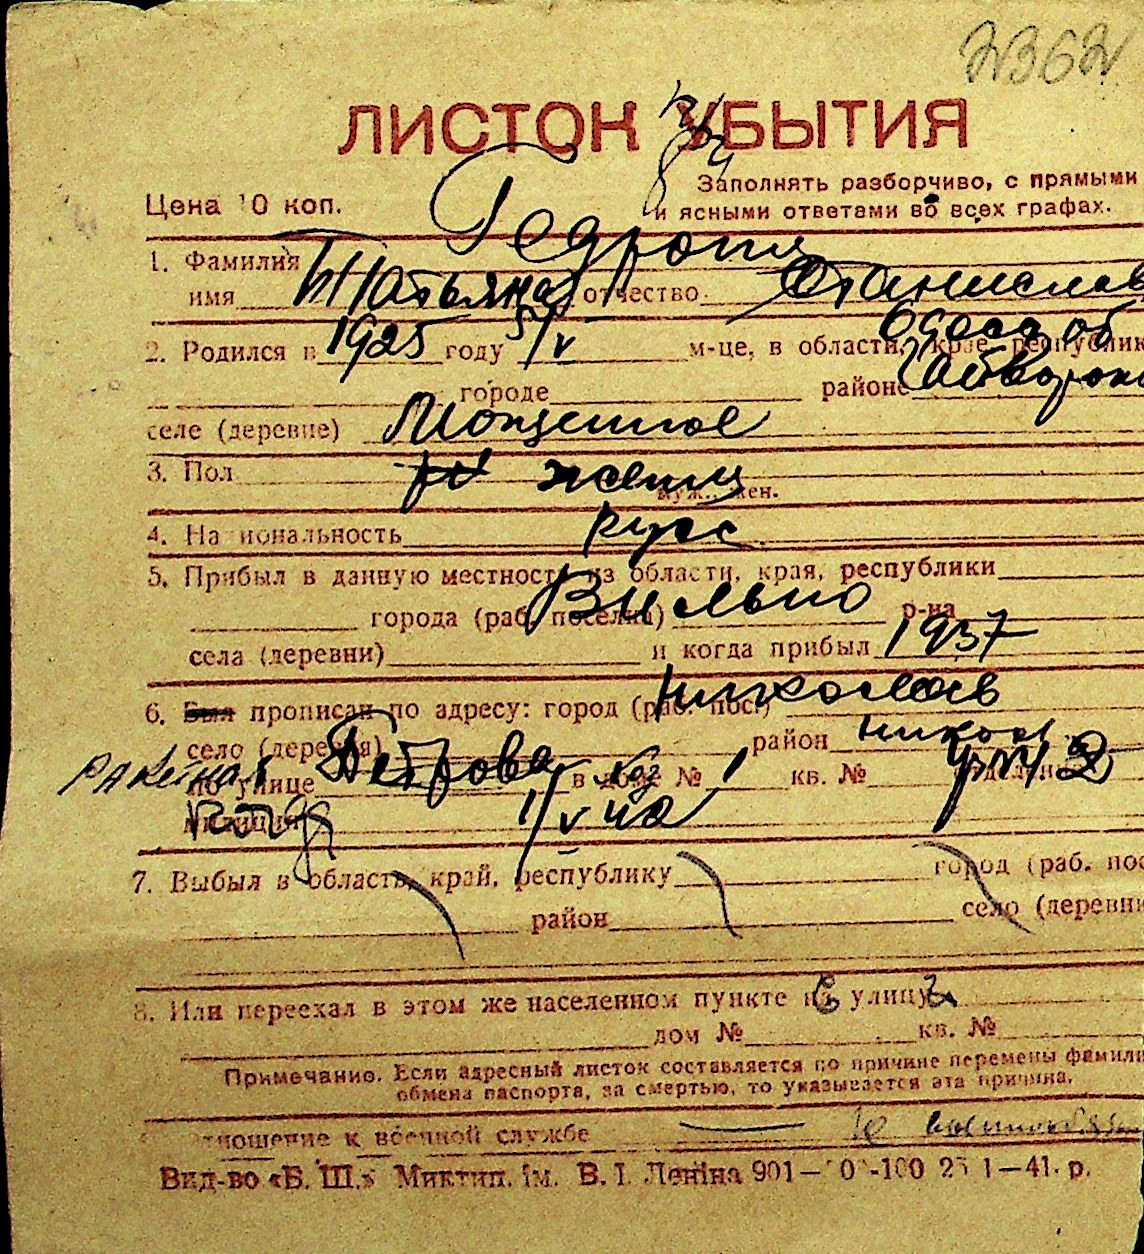 2362
ЛИСТОК УБЫТИЯ
Заполнять разборчиво, с прямыми
Цена 10 коп.
и ясными ответами во всех графах.
1. Фамилия
имя Татьяна отчество Станислав
2. Родился в 1925 году 5/V м-це, в области, крае, республик
Одесс об
городе районе
селе (деревне)
3. Пол женщ
муж., жен.
4. На иональность русс
5. Прибыл в данную местность из области, края, республики
города (раб. поселка) Вильно р-на
села (деревни) и когда прибыл 1937
6. Был прописан по адресу: город (раб. пос.) Николаев
село (деревня) район никол
по улице Петрова в доме № 1 кв. № отделен
милиции
7. Выбыл в область, край, республику город (раб. пос
район село (деревни
8. Или переехал в этом же населенном пункте на улицу
дом № кв. №
Примечание. Если адресный листок составляется по причине перемены фамили
обмена паспорта, за смертью, то указывается эта причина.
тношение к военной службе
Вид-во «Б. Ш.» Миктип. ім. В. І. Леніна 901— 0 -100 25 1—41. р.